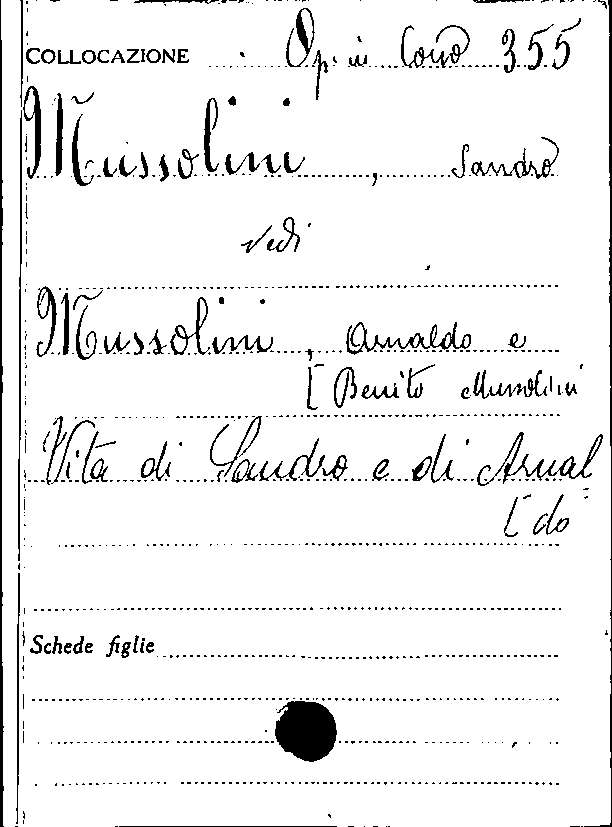 COLLOCAZIONE Op. in Cons 355
Mussolini, Sandro
vedi
Mussolini, Arnaldo e
[Benito Mussolini
Vita di Sandro e di Arnal=
[do
Schede figlie